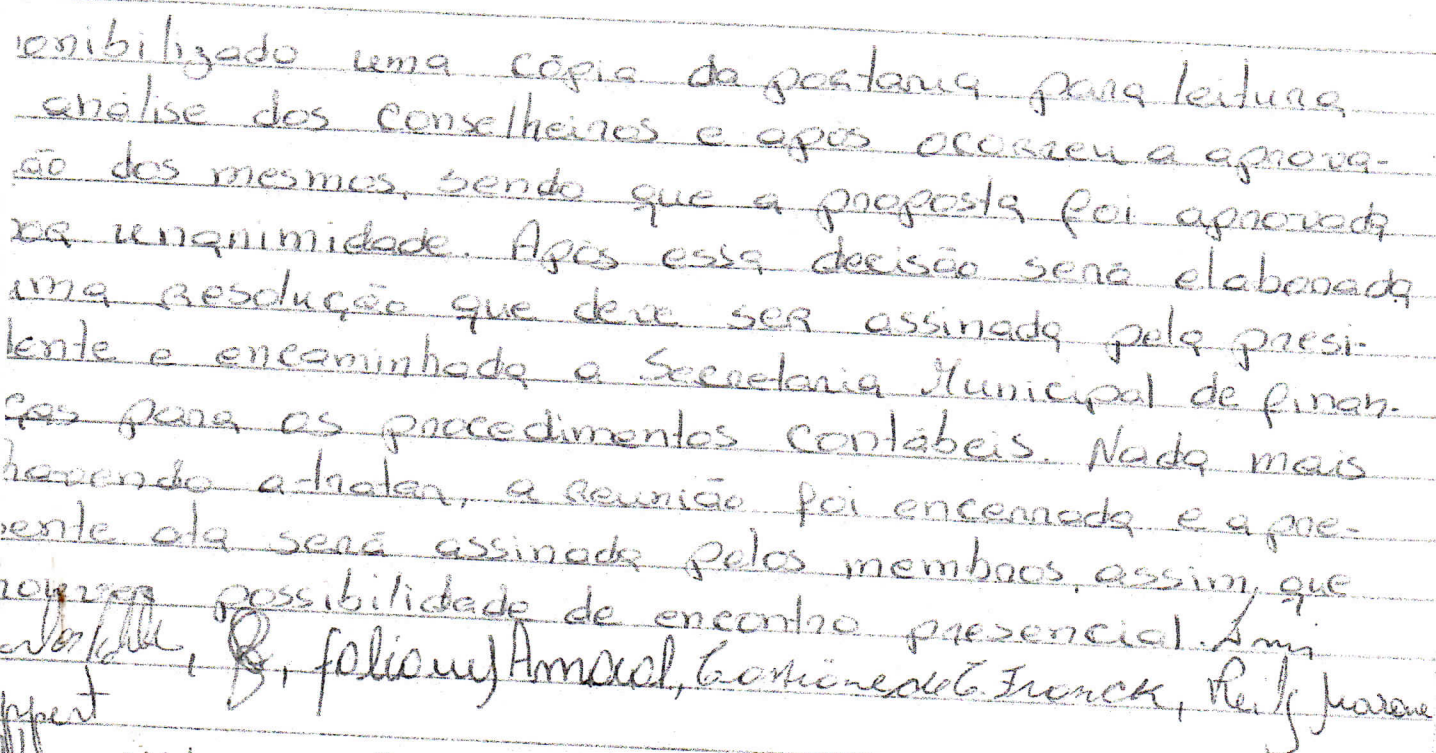 onibilizado uma cópia da portaria para leitura
análise dos Conselheiros e após ocorreu a aprova-
ão dos mesmos, sendo que a proposta foi aprovada
por unanimidade. Após essa decisão será elaborada
uma resolução que deve ser assinada pela presi-
dente e encaminhada a Secretaria Municipal de finan-
ças para os procedimentos contábeis. Nada mais
havendo a tratar, a reunião foi encerrada e a pre-
sente ata será assinada pelos membros, assim, que
houver possibilidade de encontro presencial.
Amaral, Franck,